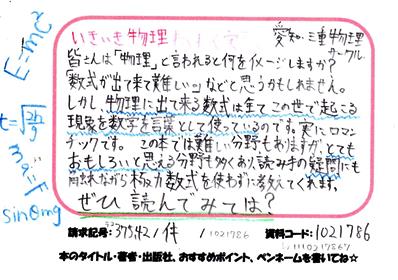 いきいき物理
愛知・三重物理サークル
皆さんは「物理」と言われると何をイメージしますか?
「数式が出て来て難しい…」などと思うかもしれません。
しかし、物理に出て来る数式は全てこの世で起こる
現象を数字を言葉として使っているのです。実にロマン
チックです。この本では難しい分野もありますが、とても
おもしろいと思える分野も多くあり読み手の疑問にも
ながら極力数式を使わずに教えてくれます。
ぜひ読んでみては?
E=mc²
ma=F
sinθmg
請求記号: 375.42/イ件/ 1021786
資料コード: 1021786
本のタイトル・著者・出版社、おすすめポイント、ペンネームを書いてね☆